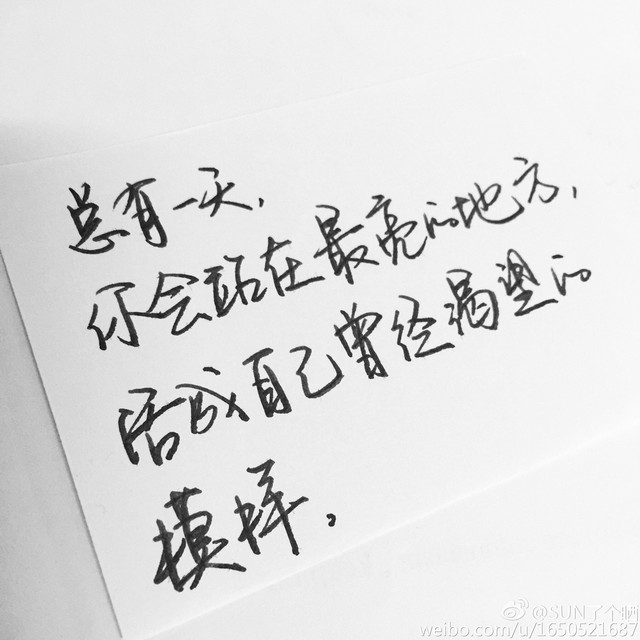 总有一天，
你会站在最亮的地方，
活成自己曾经渴望的
模样。
@SUN了个晒
weibo.com/u/1650521687